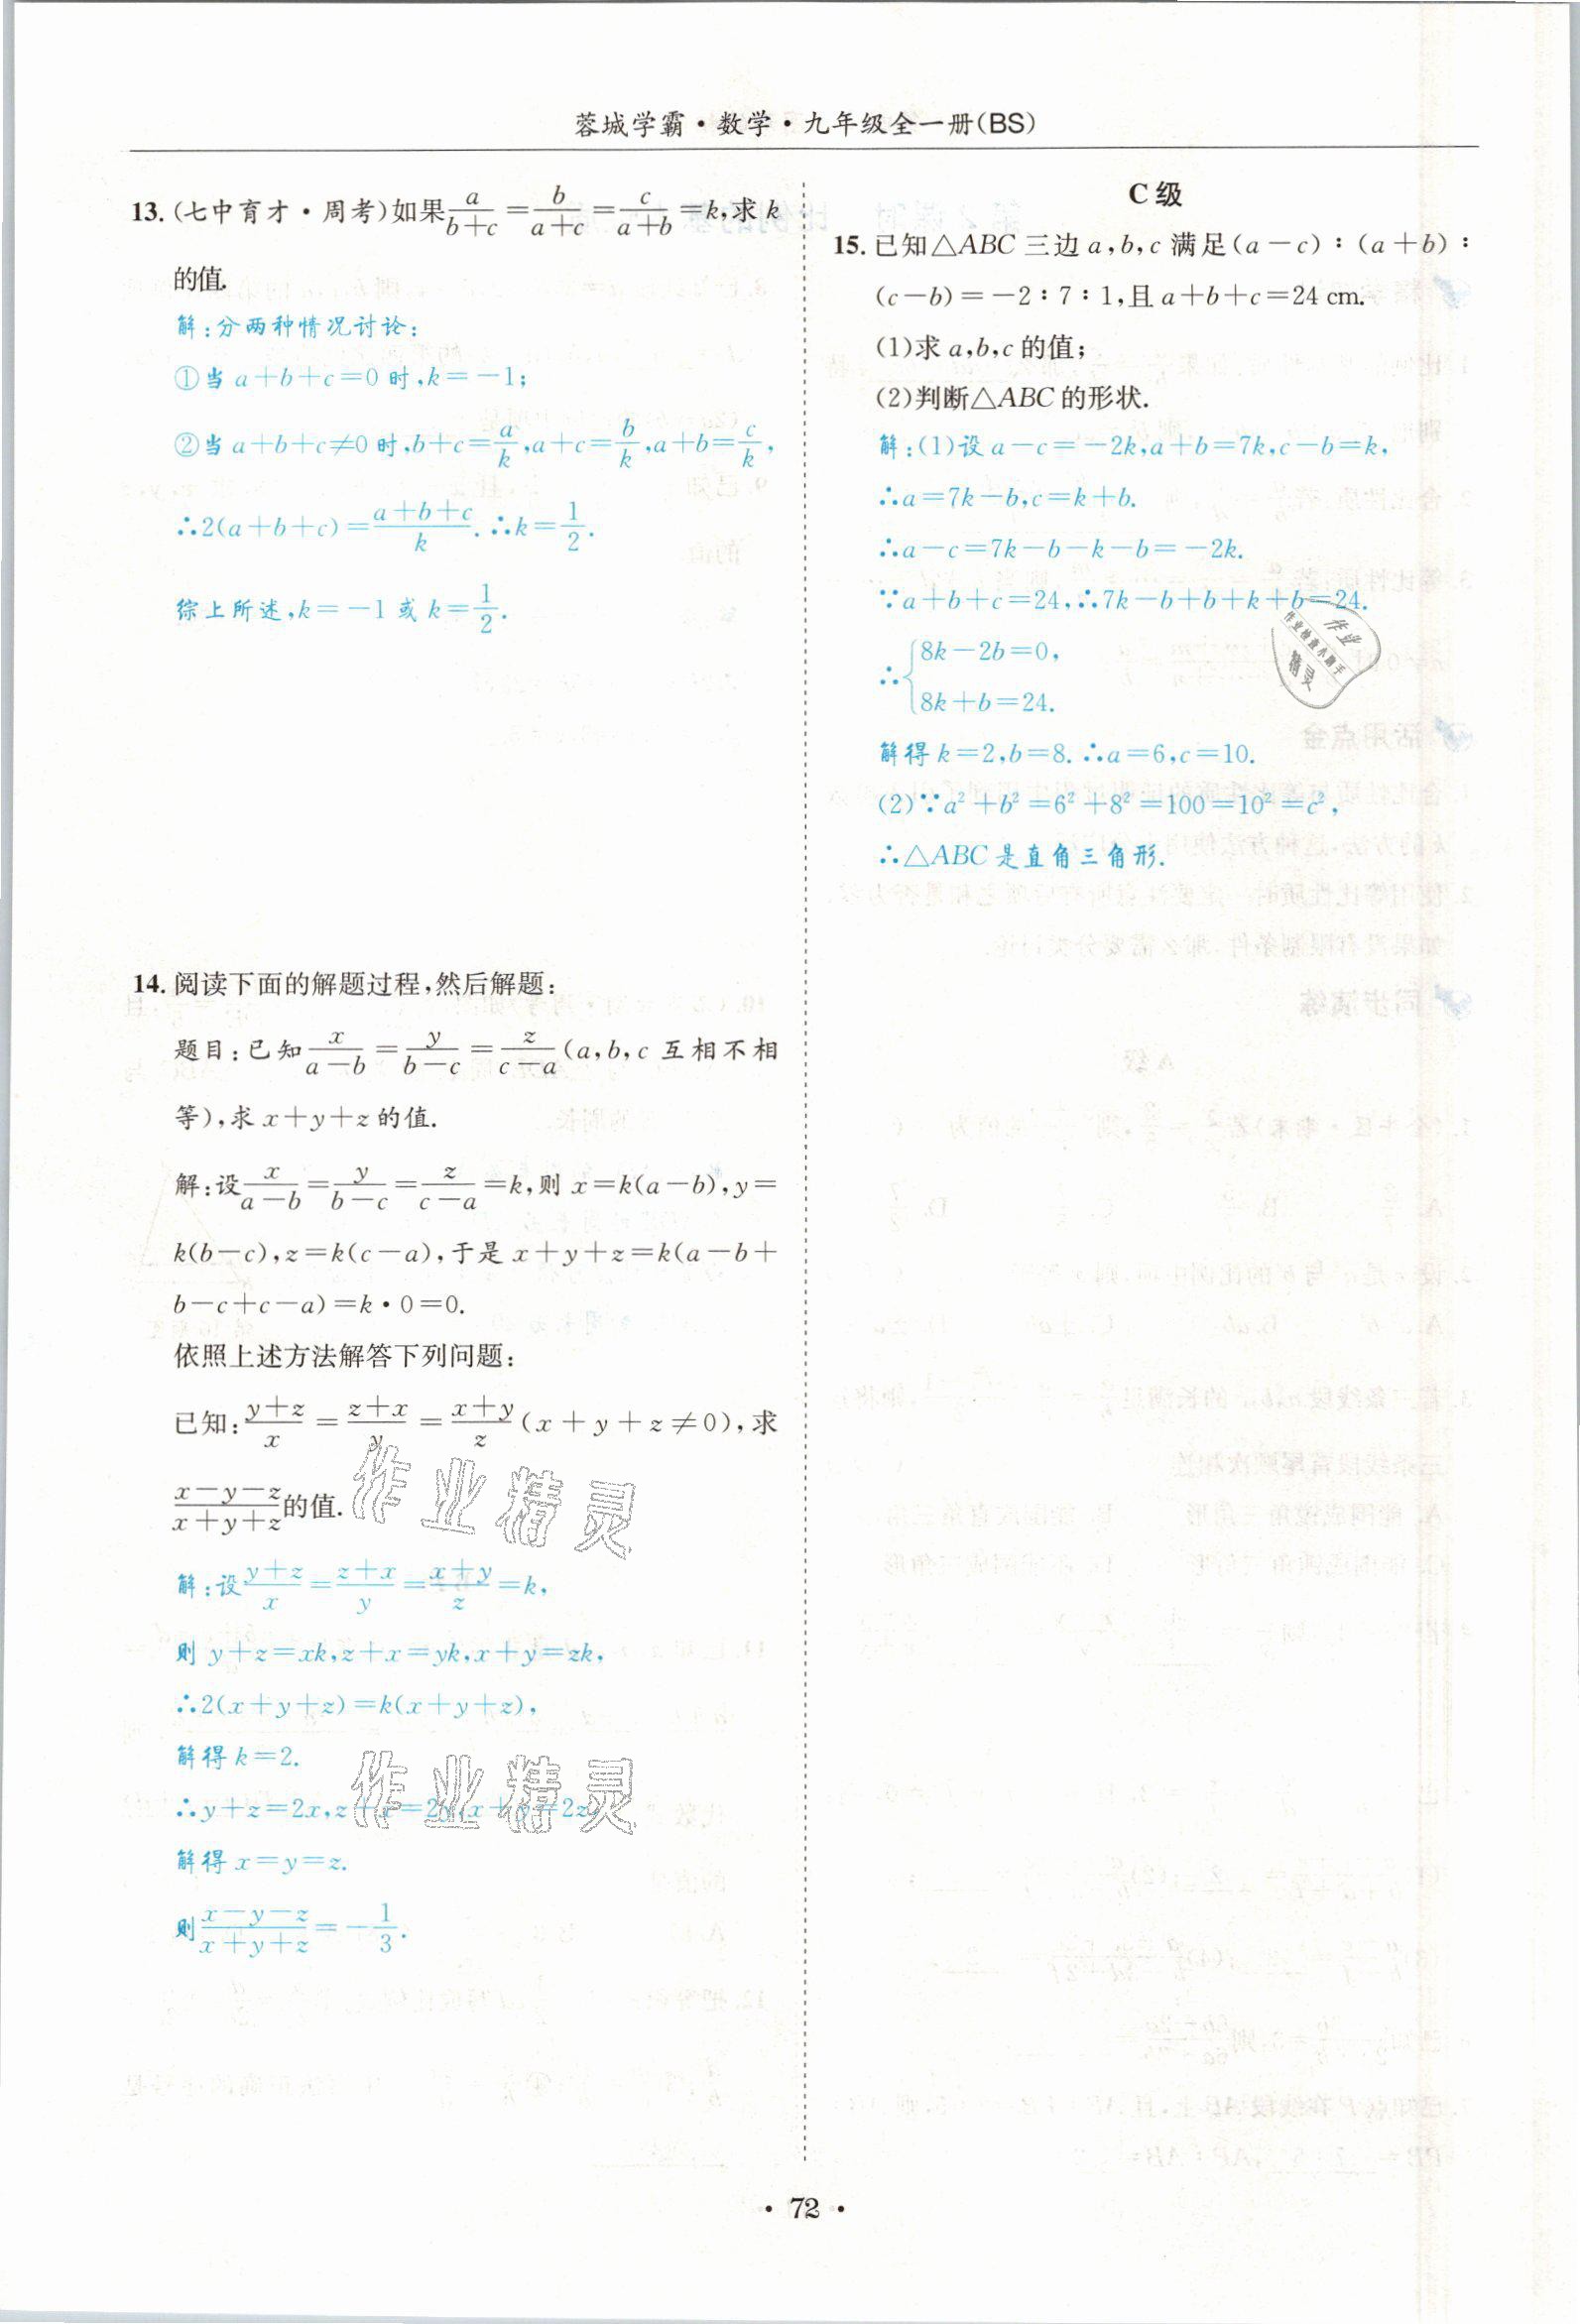 蓉城学霸·数学·九年级全一册(BS)
13.(七中育才·周考)如果a/(b+c)=b/(a+c)=c/(a+b)=k,求k
的值.
解:分两种情况讨论:
①当a+b+c=0时,k=-1;
②当a+b+c≠0时,b+c=a/k,a+c=b/k,a+b=c/k,
∴2(a+b+c)=(a+b+c)/k.∴k=1/2.
综上所述,k=-1或k=1/2.
14.阅读下面的解题过程,然后解题:
题目:已知x/(a-b)=y/(b-c)=z/(c-a)(a,b,c互相不相
等),求x+y+z的值.
解:设x/(a-b)=y/(b-c)=z/(c-a)=k,则x=k(a-b),y=
k(b-c),z=k(c-a),于是x+y+z=k(a-b+
b-c+c-a)=k·0=0.
依照上述方法解答下列问题:
已知:(y+z)/x=(z+x)/y=(x+y)/z(x+y+z≠0),求
(x-y-z)/(x+y+z)的值.
解:设(y+z)/x=(z+x)/y=(x+y)/z=k,
则y+z=xk,z+x=yk,x+y=zk,
∴2(x+y+z)=k(x+y+z),
解得k=2.
∴y+z=2x,z+x=2y,x+y=2z,
解得x=y=z.
则(x-y-z)/(x+y+z)=-1/3.
作业精灵
作业精灵
C级
15.已知△ABC三边a,b,c满足(a-c):(a+b):
(c-b)=-2:7:1,且a+b+c=24 cm.
(1)求a,b,c的值;
(2)判断△ABC的形状.
解:(1)设a-c=-2k,a+b=7k,c-b=k,
∴a=7k-b,c=k+b.
∴a-c=7k-b-k-b=-2k.
∵a+b+c=24,∴7k-b+b+k+b=24.
∴{8k-2b=0,
8k+b=24.
解得k=2,b=8.∴a=6,c=10.
(2)∵a²+b²=6²+8²=100=10²=c²,
∴△ABC是直角三角形.
作业
作业检查小助手
精灵
·72·